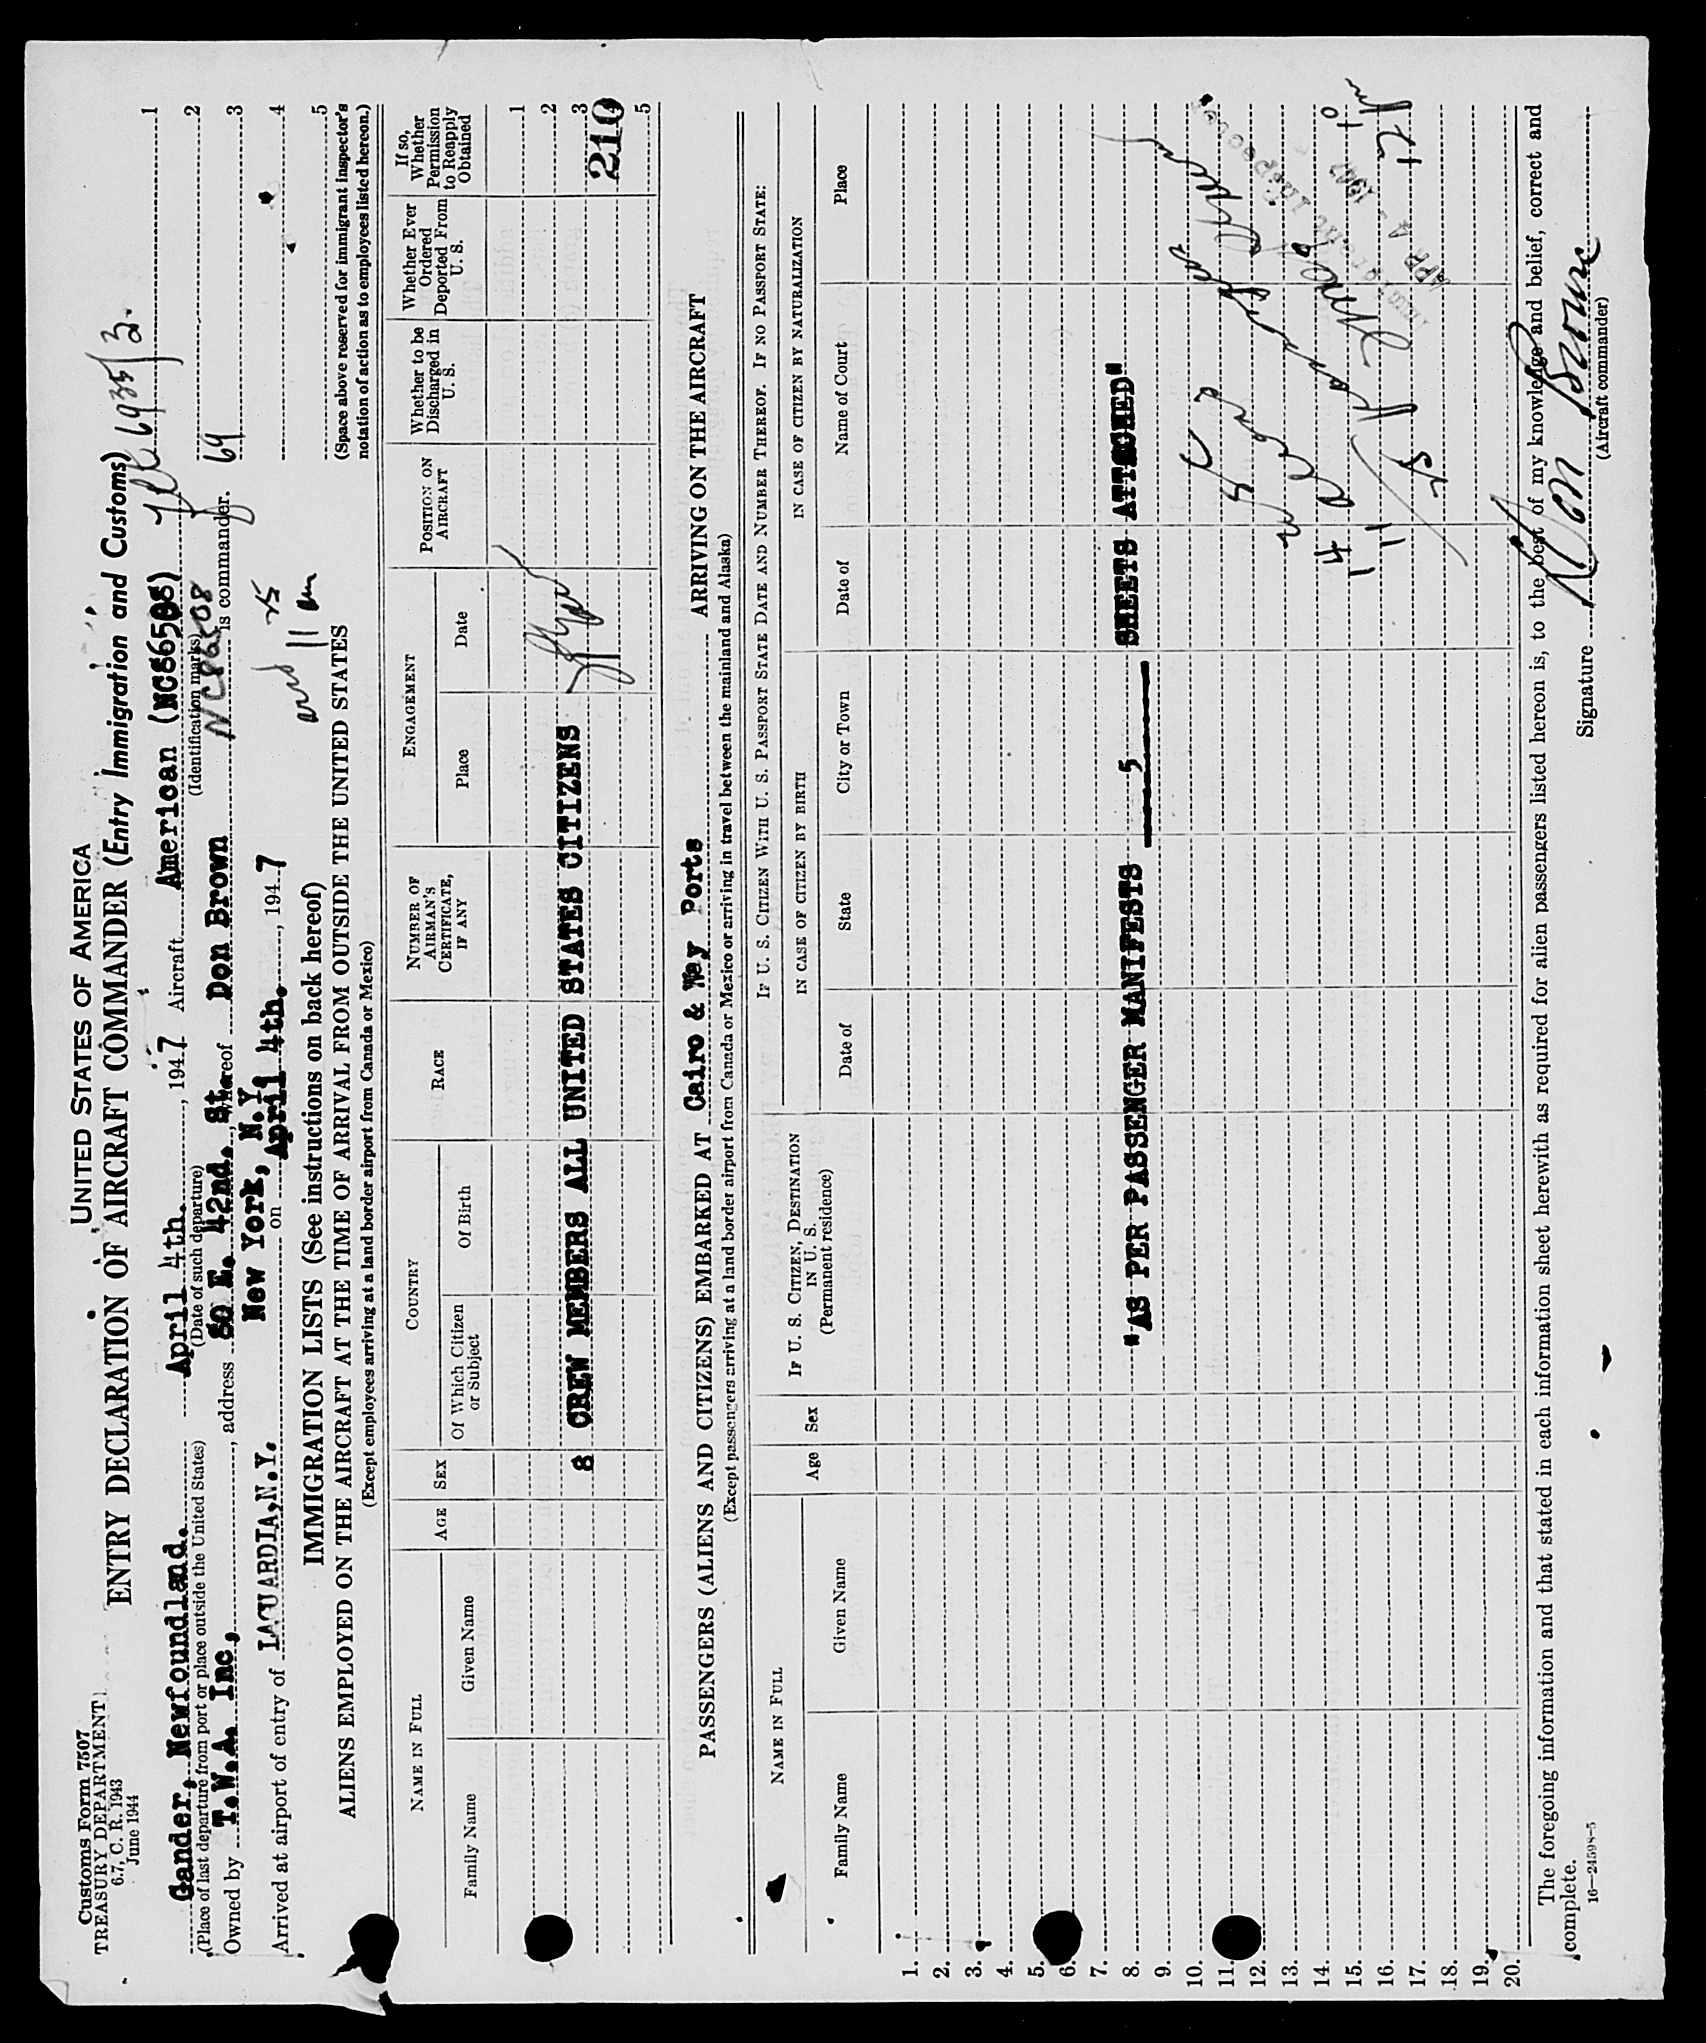 Customs Form 7507
TREASURY DEPARTMENT
6.7, C. R. 1943
June 1944
UNITED STATES OF AMERICA
ENTRY DECLARATION OF AIRCRAFT COMMANDER (Entry Immigration and Customs)
Gander, Newfoundland. April 4th. , 1947 Aircraft American (NC86508)
(Place of last departure from port or place outside the United States) (Date of such departure) (Identification marks)
Owned by T.W.A. Inc, , address 60 E. 42nd. St. , whereof Don Brown NC86508 is commander.
New York, N.Y
Arrived at airport of entry of LAGUARDIA, N.Y. on April 4th. , 1947
11 am
1
2
69 3
4
5
(Space above reserved for immigrant inspector's
notation of action as to employees listed hereon.)
IMMIGRATION LISTS (See instructions on back hereof)
ALIENS EMPLOYED ON THE AIRCRAFT AT THE TIME OF ARRIVAL FROM OUTSIDE THE UNITED STATES
(Except employees arriving at a land border airport from Canada or Mexico)
NAME IN FULL
Family Name
Given Name
AGE
SEX
COUNTRY
Of Which Citizen or Subject
Of Birth
RACE
NUMBER OF AIRMAN'S CERTIFICATE, IF ANY
ENGAGEMENT
Place
Date
POSITION ON AIRCRAFT
Whether to be Discharged in U. S.
Whether Ever Ordered Deported From U. S.
If so, Whether Permission to Reapply Obtained
1
2
8 CREW MEMBERS ALL UNITED STATES CITIZENS 3
210
5
PASSENGERS (ALIENS AND CITIZENS) EMBARKED AT Cairo & Way Ports ARRIVING ON THE AIRCRAFT
(Except passengers arriving at a land border airport from Canada or Mexico or arriving in travel between the mainland and Alaska)
NAME IN FULL
Family Name
Given Name
Age
Sex
IF U. S. CITIZEN, DESTINATION IN U. S.
(Permanent residence)
IF U. S. CITIZEN WITH U. S. PASSPORT STATE DATE AND NUMBER THEREOF. IF NO PASSPORT STATE:
IN CASE OF CITIZEN BY BIRTH
IN CASE OF CITIZEN BY NATURALIZATION
Date of
State
City or Town
Date of
Name of Court
Place
1.
2.
3.
4.
5.
6.
7.
8. "AS PER PASSENGER MANIFESTS 5 SHEETS ATTACHED"
9.
10.
11.
12.
13.
14.
15.
16.
17.
18.
19.
20.
Immigrant Inspector
APR 4 - 1947
The foregoing information and that stated in each information sheet herewith as required for alien passengers listed hereon is, to the best of my knowledge and belief, correct and
complete.
16—24598-5
Signature Don Brown
(Aircraft commander)